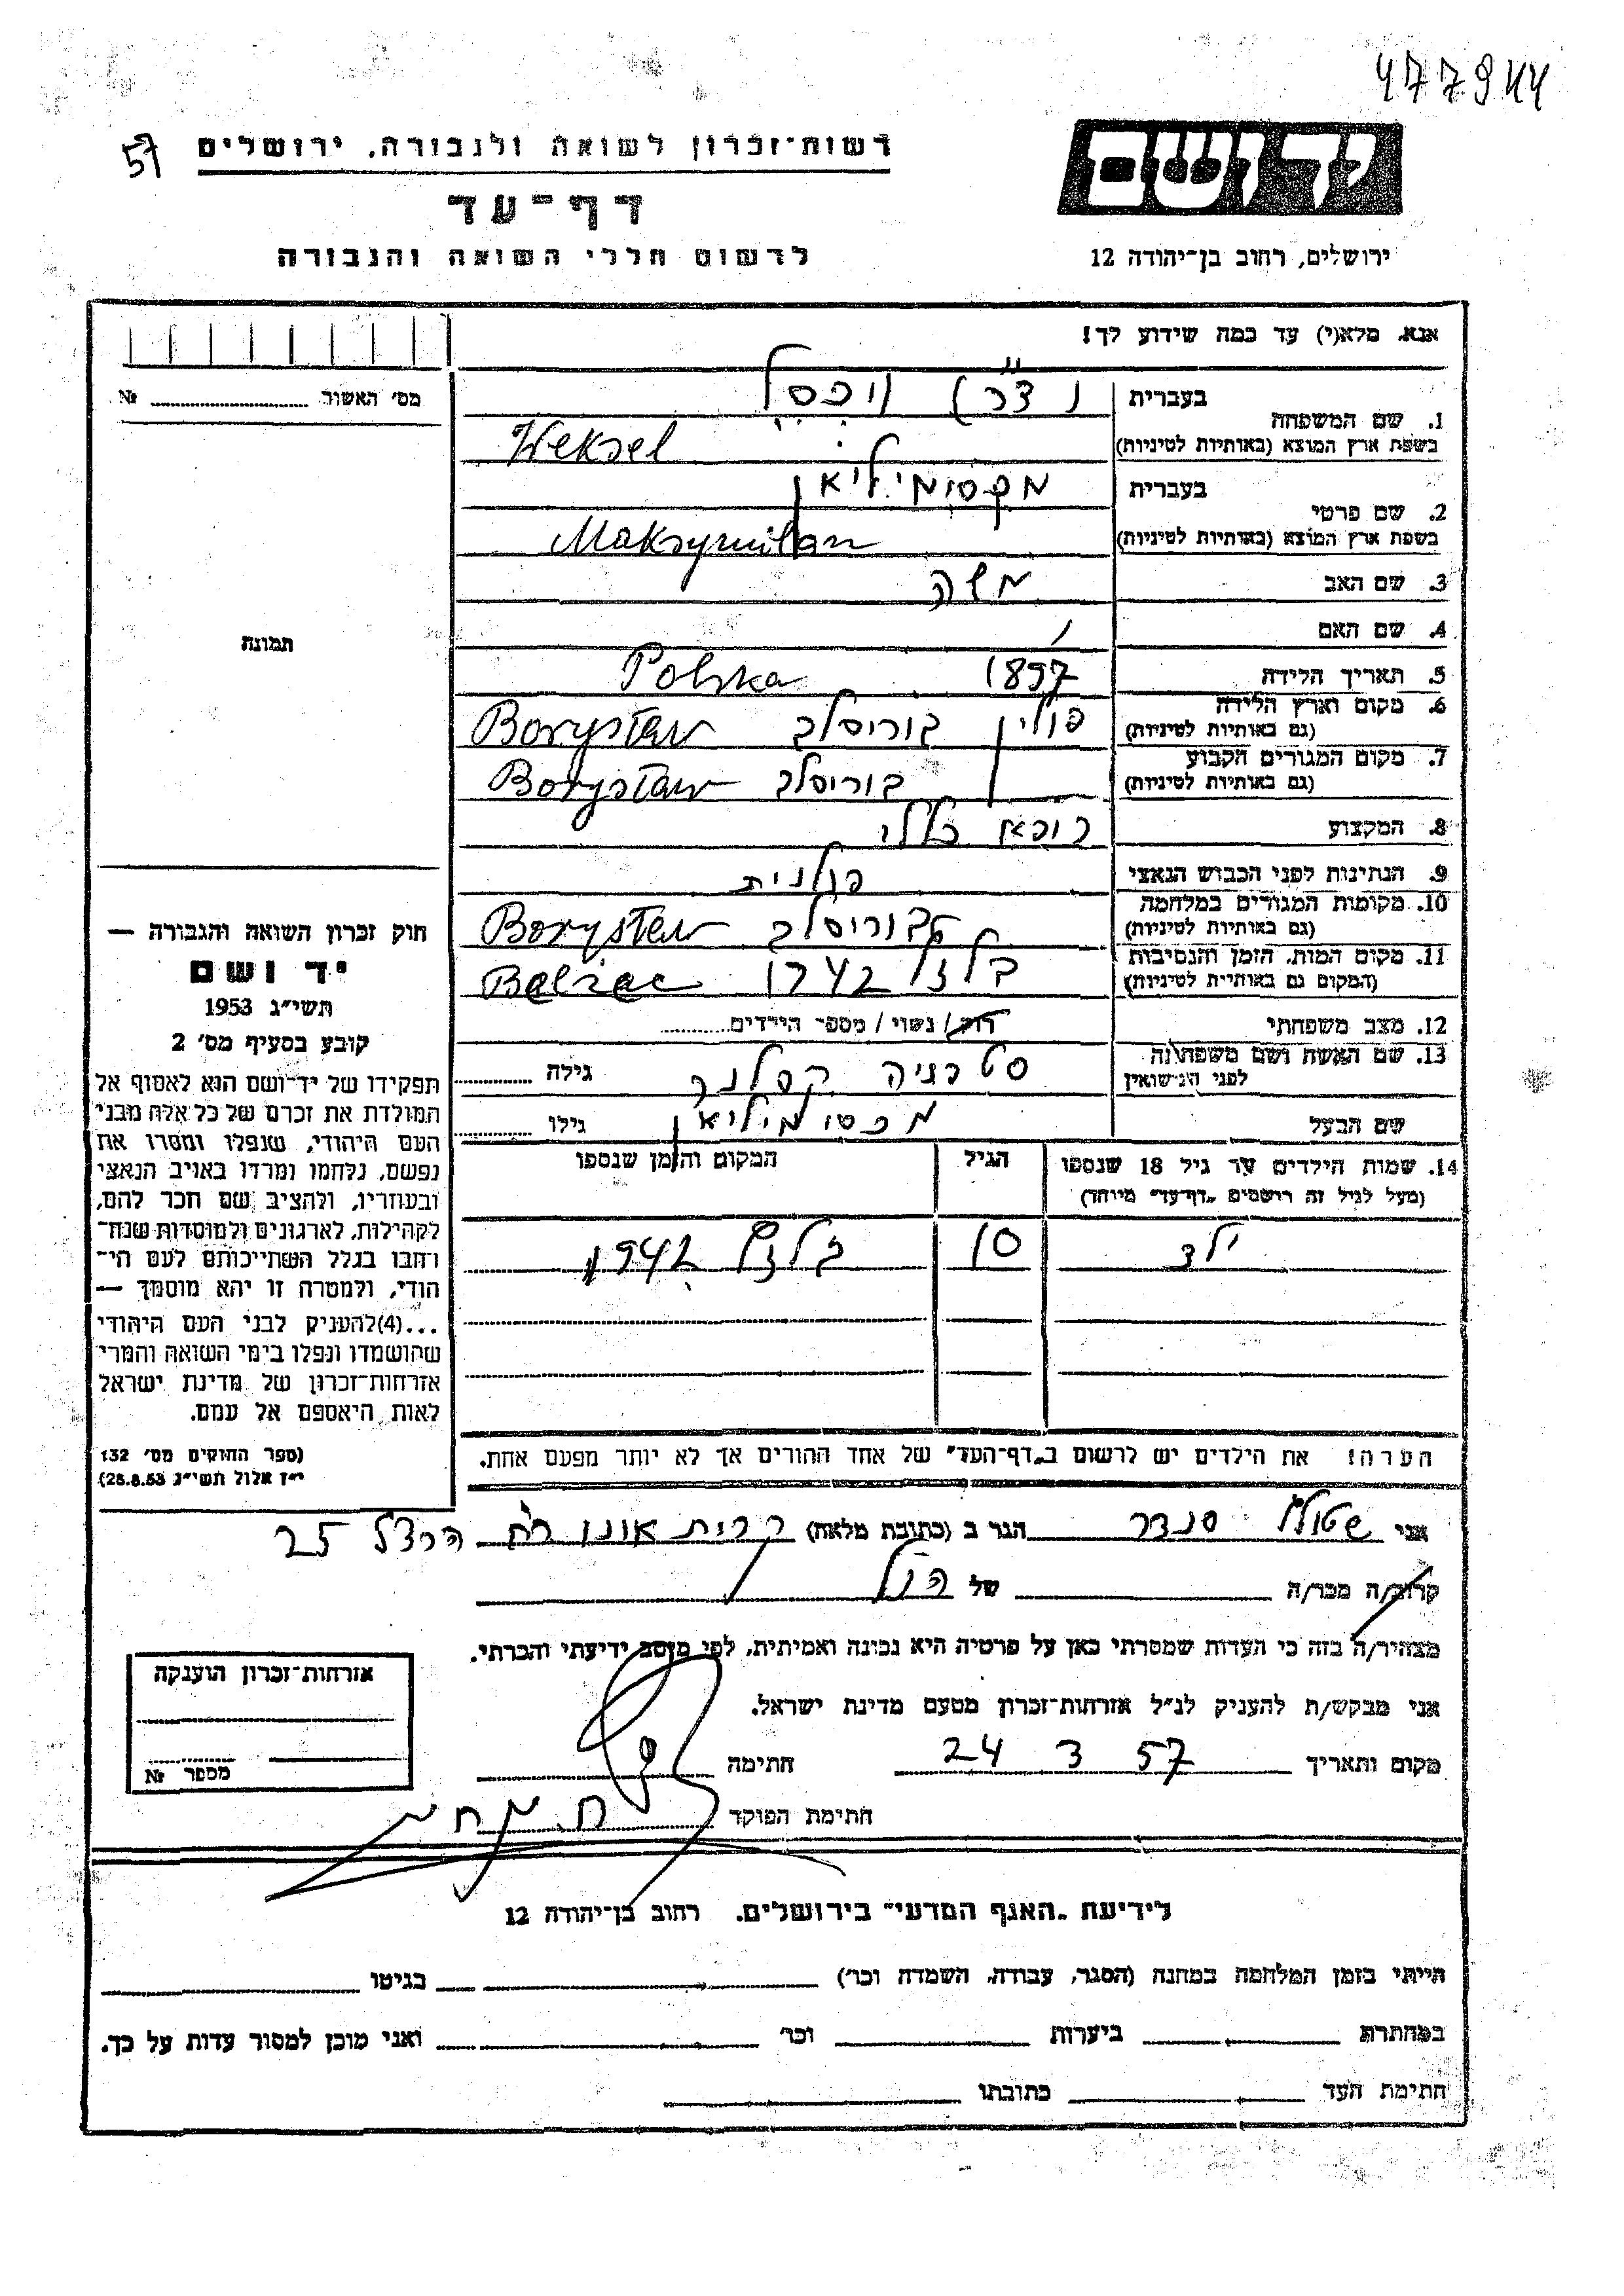 477944
57
רשות־זכרון לשואה ולגבורה, ירושלים
יד ושם
דף־עד
לרשום חללי השואה והגבורה
ירושלים, רחוב בן־יהודה 12
אנא, מלא(י) עד כמה שידוע לך!
מס׳ האשור № 
1. שם המשפחה
בעברית (ד״ר) וכסל
בשפת ארץ המוצא (באותיות לטיניות) Weksel
2. שם פרטי
בעברית מקסימיליאן
בשפת ארץ המוצא (באותיות לטיניות) Maksymilian
3. שם האב משה
4. שם האם
תמונה
5. תאריך הלידה 1897 Polska
6. מקום וארץ הלידה (גם באותיות לטיניות) פולין בוריסלב Borysław
7. מקום המגורים הקבוע (גם באותיות לטיניות) בוריסלב Borysław
8. המקצוע רופא כללי
9. הנתינות לפני הכבוש הנאצי פולנית
10. מקומות המגורים במלחמה (גם באותיות לטיניות) בוריסלב Borysław
11. מקום המות, הזמן והנסיבות (המקום גם באותיות לטיניות) 1942
12. מצב משפחתי רוק / נשוי / מספר הילדים
13. שם האשה ושם משפחתה לפני הנישואין גילה
שם הבעל מכסימיליאן גילו
14. שמות הילדים עד גיל 18 שנספו
(מעל לגיל זה רושמים „דף־עד״ מיוחד)
הגיל
המקום והזמן שנספו
ילד 10 1942
הערה! את הילדים יש לרשום ב„דף־העד״ של אחד ההורים אך לא יותר מפעם אחת.
חוק זכרון השואה והגבורה —
יד ושם
תשי״ג 1953
קובע בסעיף מס׳ 2
תפקידו של יד־ושם הוא לאסוף אל
המולדת את זכרם של כל אלה מבני
העם היהודי, שנפלו ומסרו את
נפשם, נלחמו ומרדו באויב הנאצי
ובעוזריו, ולהציב שם וזכר להם,
לקהילות, לארגונים ולמוסדות שנח־
רבו בגלל השתייכותם לעם הי־
הודי, ולמטרה זו יהא מוסמך —
...(4)להעניק לבני העם היהודי
שהושמדו ונפלו בימי השואה והמרי
אזרחות־זכרון של מדינת ישראל
לאות היאספם אל עמם.
(ספר החוקים מס׳ 132
י״ז אלול תשי״ג 28.8.53)
אני סנדר הגר ב (כתובת מלאה) קרית אונו רח הרצל 25
קרוב/ה מכר/ה של הנ״ל
מצהיר/ה בזה כי העדות שמסרתי כאן על פרטיה היא נכונה ואמיתית, לפי מיטב ידיעתי והכרתי.
אני מבקש/ת להעניק לנ״ל אזרחות־זכרון מטעם מדינת ישראל.
מקום ותאריך 24 3 57 חתימה
חתימת הפוקד
אזרחות־זכרון הוענקה
מספר №
לידיעת „האגף המדעי״ בירושלים. רחוב בן־יהודה 12
הייתי בזמן המלחמה במחנה (הסגר, עבודה, השמדה וכו׳) בגיטו
במחתרת ביערות וכו׳ ואני מוכן למסור עדות על כך.
חתימת העד כתובתו